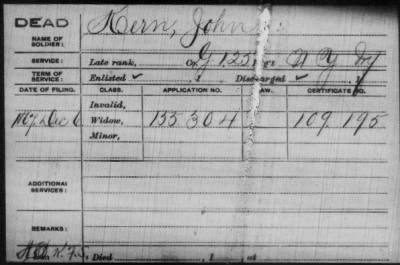 DEAD
NAME OF SOLDIER: Kern, John
SERVICE: Late rank, Co. G, 125 Reg't N Y Inf
TERM OF SERVICE: Enlisted ✓ , 1 Discharged ✓ , 1
DATE OF FILING. CLASS. APPLICATION NO. LAW. CERTIFICATE NO.
Invalid,
Dec 6 Widow, 135 304 109.195
Minor,
ADDITIONAL SERVICES:
REMARKS:
Died , 1 , at